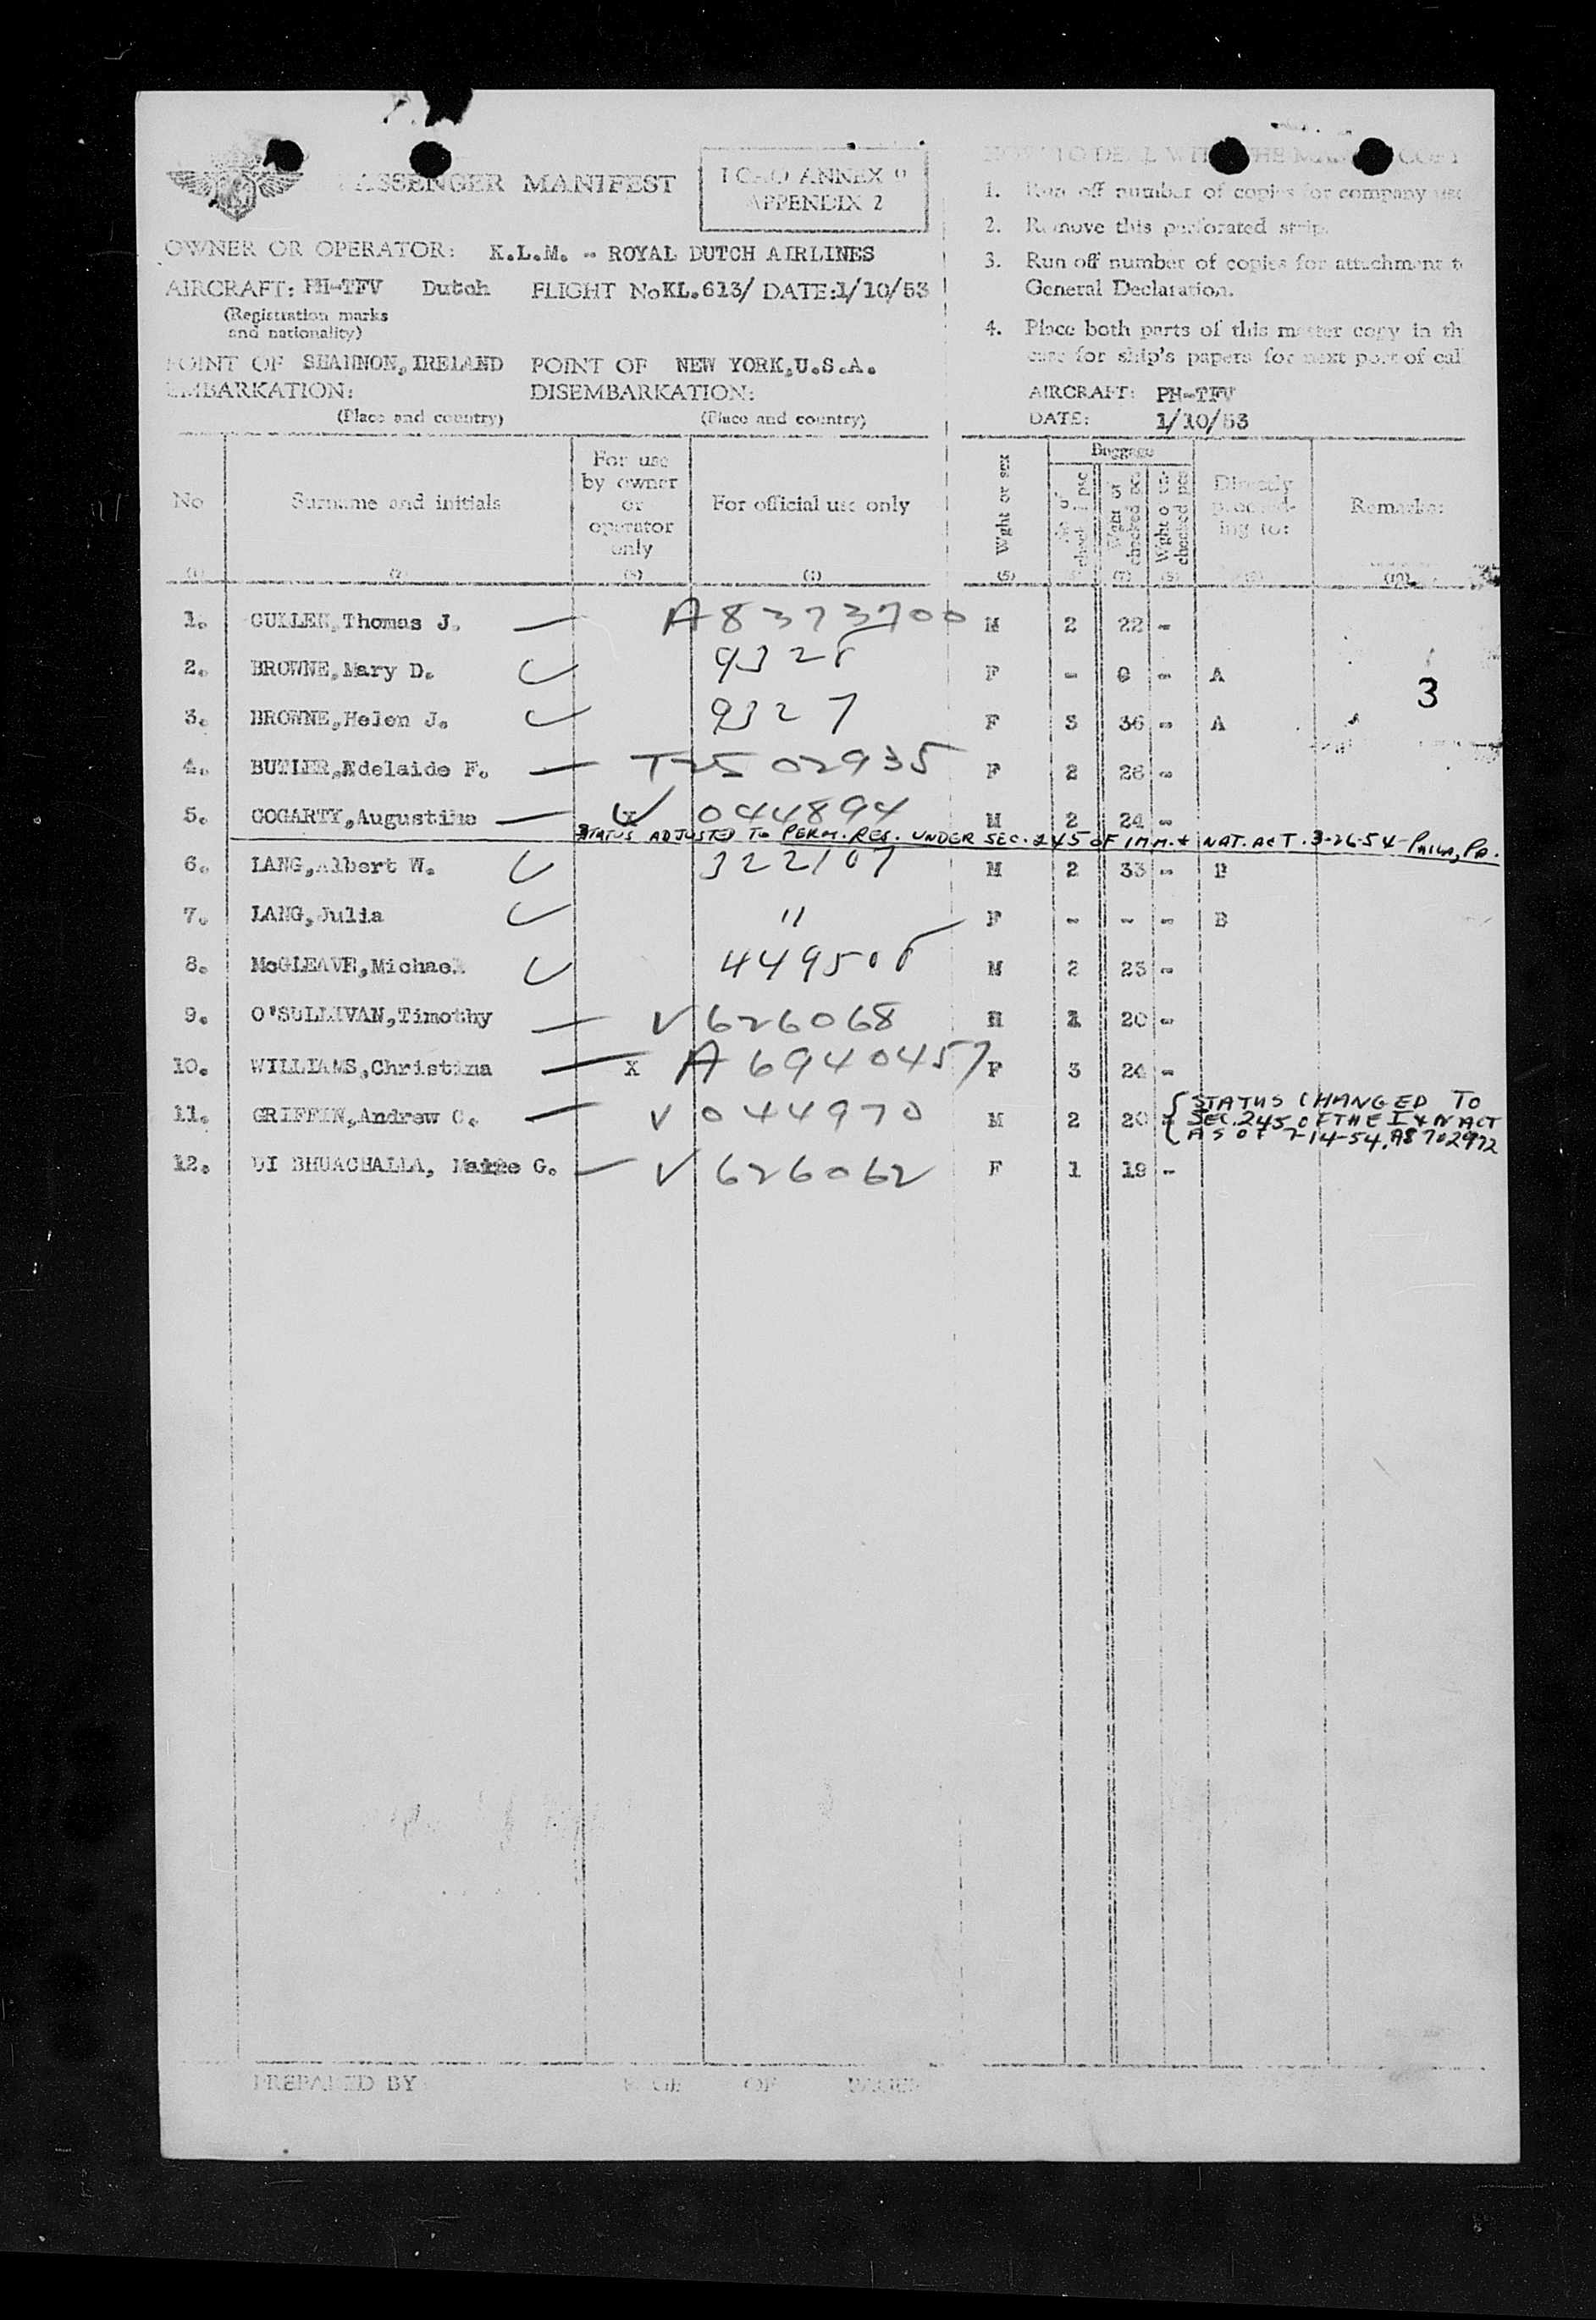 PASSENGER MANIFEST
ICAO ANNEX 9
APPENDIX 2
OWNER OR OPERATOR: K.L.M. - ROYAL DUTCH AIRLINES
AIRCRAFT: PH-TFV Dutch FLIGHT No KL.613/ DATE: 1/10/53
(Registration marks
and nationality)
POINT OF SHANNON, IRELAND POINT OF NEW YORK, U.S.A.
EMBARKATION: DISEMBARKATION:
(Place and country) (Place and country)
HOW TO DEAL WITH THE MASTER COPY
1. Run off number of copies for company use
2. Remove this perforated strip.
3. Run off number of copies for attachment t
General Declaration.
4. Place both parts of this master copy in th
case for ship's papers for next port of call
AIRCRAFT: PH-TFV
DATE: 1/10/53
No Surname and initials For use by owner or operator only For official use only Wght or sex Baggage Directly proceeding to: Remarks:
(1) (2) (3) (4) (5) (7) (8) (10)
1. Thomas J. — A8373700 M 2 22 -
2. BROWNE, Mary D. 9328 F - 0 - A
3
3. BROWNE, Helen J. 9327 F 3 36 - A
4. BUTLER, Adelaide F. — T-2502935 F 2 26 -
5. GOGARTY, Augustine — X V 044894 M 2 24 -
STATUS ADJUSTED TO PERM. RES. UNDER SEC. 245 OF IMM. + NAT. ACT. 3-26-54 - PHILA, PA.
6. LANG, Albert W. 322107 M 2 33 - B
7. LANG, Julia " F - - - B
8. McGLEAVE, Michael 449508 M 2 23 -
9. O'SULLIVAN, Timothy — V 626068 M 1 20 -
10. WILLIAMS, Christina — X A 6940457 F 3 24 -
11. GRIFFIN, Andrew C. — V 044970 M 2 20 -
STATUS CHANGED TO
SEC. 245 OF THE I & N ACT
AS OF 7-14-54. A8702972
12. DI BHUACHALLA, Maire G. — V 626062 F 1 19 -
PREPARED BY PAGE OF PAGES